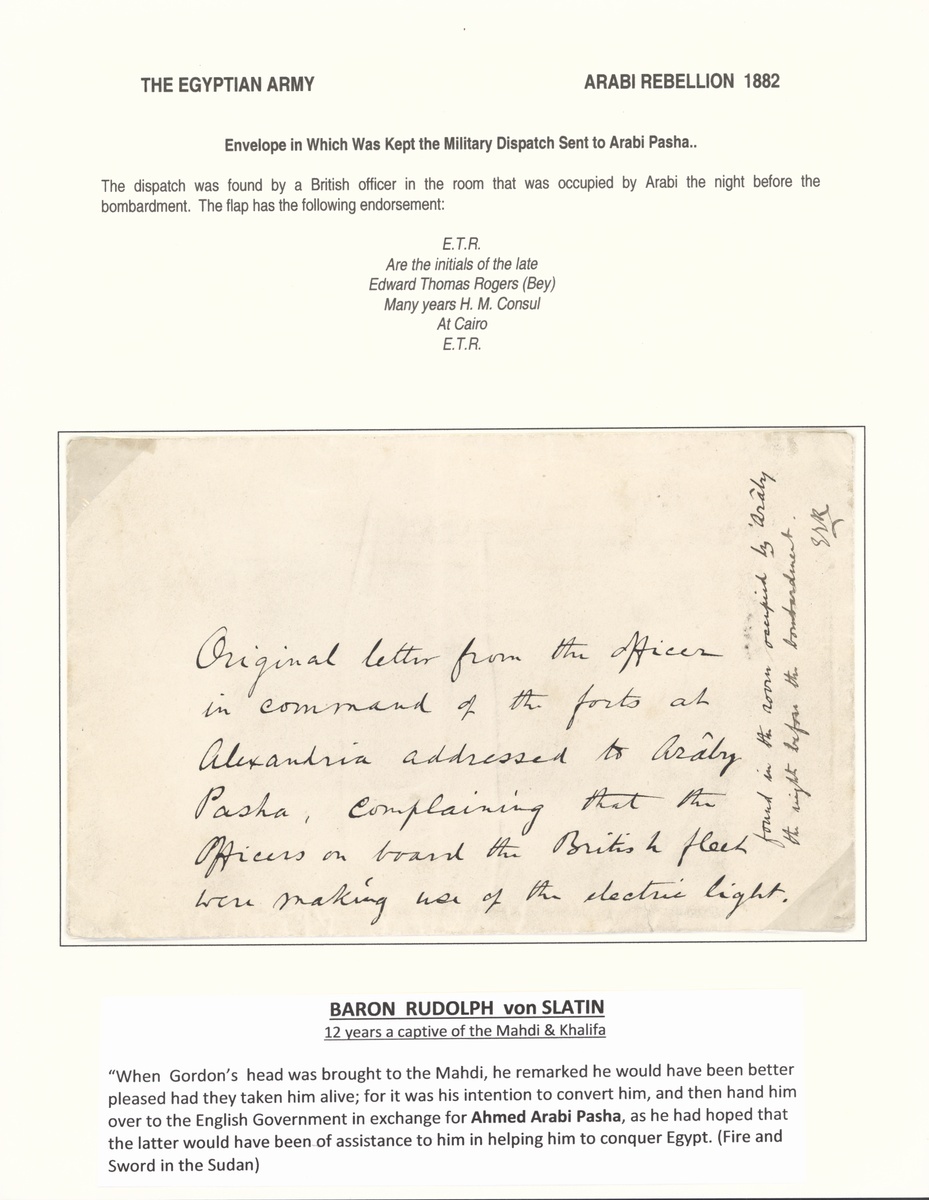 THE EGYPTIAN ARMY
ARABI REBELLION 1882
Envelope in Which Was Kept the Military Dispatch Sent to Arabi Pasha..
The dispatch was found by a British officer in the room that was occupied by Arabi the night before the
bombardment. The flap has the following endorsement:
E.T.R.
Are the initials of the late
Edward Thomas Rogers (Bey)
Many years H. M. Consul
At Cairo
E.T.R.
Original letter from the officer
in command of the forts at
Alexandria addressed to Arâby
Pasha, complaining that the
Officers on board the British fleet
were making use of the electric light.
found in the room occupied by 'Arâby
the night before the bombardment.
ETR
BARON RUDOLPH von SLATIN
12 years a captive of the Mahdi & Khalifa
“When Gordon’s head was brought to the Mahdi, he remarked he would have been better
pleased had they taken him alive; for it was his intention to convert him, and then hand him
over to the English Government in exchange for Ahmed Arabi Pasha, as he had hoped that
the latter would have been of assistance to him in helping him to conquer Egypt. (Fire and
Sword in the Sudan)